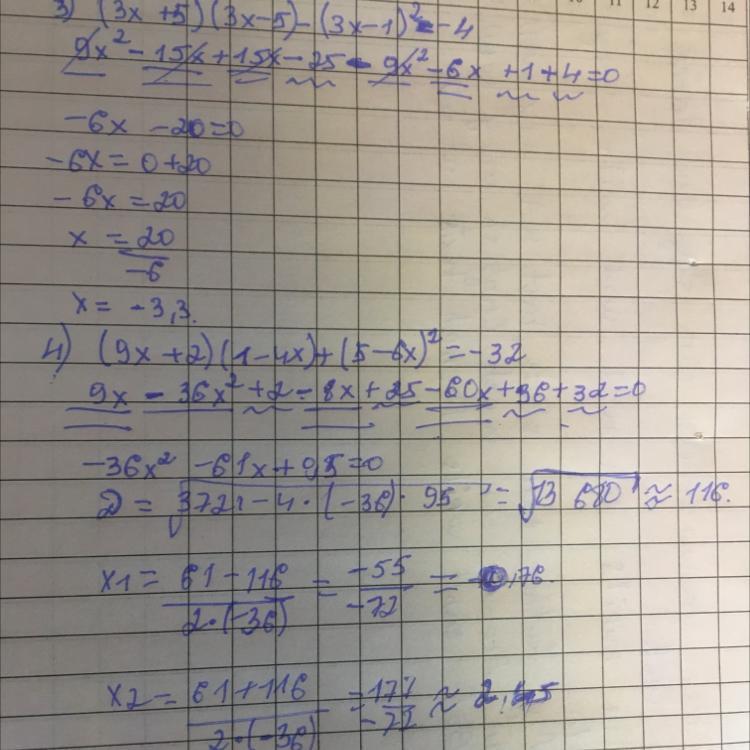 10 11 12 13 14
3) (3x+5)(3x-5)-(3x-1)²=-4
9x²-15x+15x-25-9x²-6x+1+4=0
-6x-20=0
-6x=0+20
-6x=20
x=20/-6
x=-3,3.
4) (9x+2)(1-4x)+(5-6x)²=-32
9x-36x²+2-8x+25-60x+36+32=0
-36x²-61x+95=0
D=√3721-4·(-36)·95=√13 680≈116.
x1=61-116/2·(-36)=-55/-72=0,76.
x2=61+116/2·(-36)=177/-72≈2,45